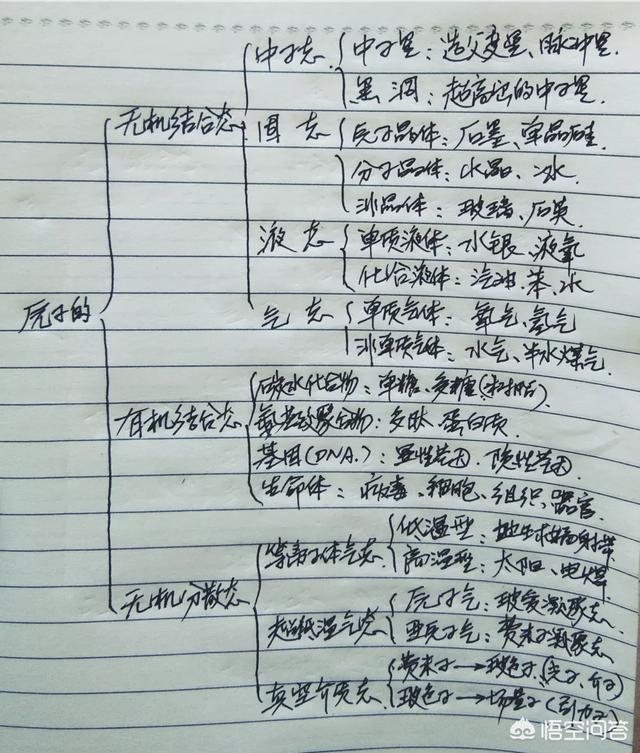 中子态 中子星：造父变星、脉冲星.
黑洞：超高温的中子星.
无机结合态 固态 原子晶体：石墨、单晶硅.
分子晶体：水晶、冰.
非晶体：玻璃、石英.
液态 单质液体：水银、液氧
化合液体：汽油、苯、水
原子的 气态 单质气体：氧气、氢气
非单质气体：水气、半水煤气
碳水化合物：单糖、多糖
有机结合态 氨基聚合物：多肽、蛋白质.
基因(DNA.)：显性基因、隐性基因.
生命体：病毒、细胞、组织、器官.
等离子体气态 低温型：地球辐射带
高温型：太阳、电焊
无机分散态
超低温气态 原子气：玻爱凝聚态.
亚原子气：费米子凝聚态
真空介质态 费米子→玻色子(光子、介子)
玻色子→场量子(引力子)
悟空问答